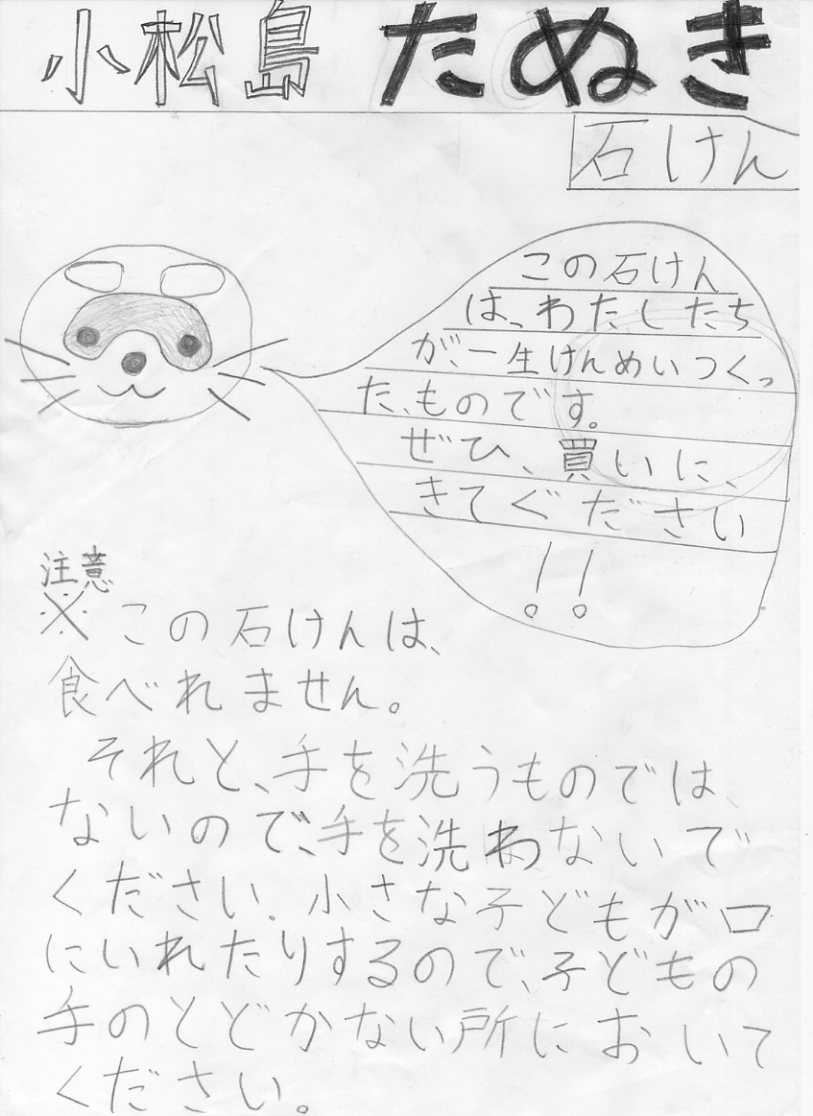 小松島 たぬき
石けん
この石けん
は、わたしたち
が、一生けんめいつくっ
た、ものです。
ぜひ、買いに、
きてぐださい
!!
注意
※この石けんは、
食べれません。
それと、手を洗うものでは、
ないので、手を洗わないで
ください。小さな子どもが口
にいれたりするので、子どもの
手のとどかない所において
ください。